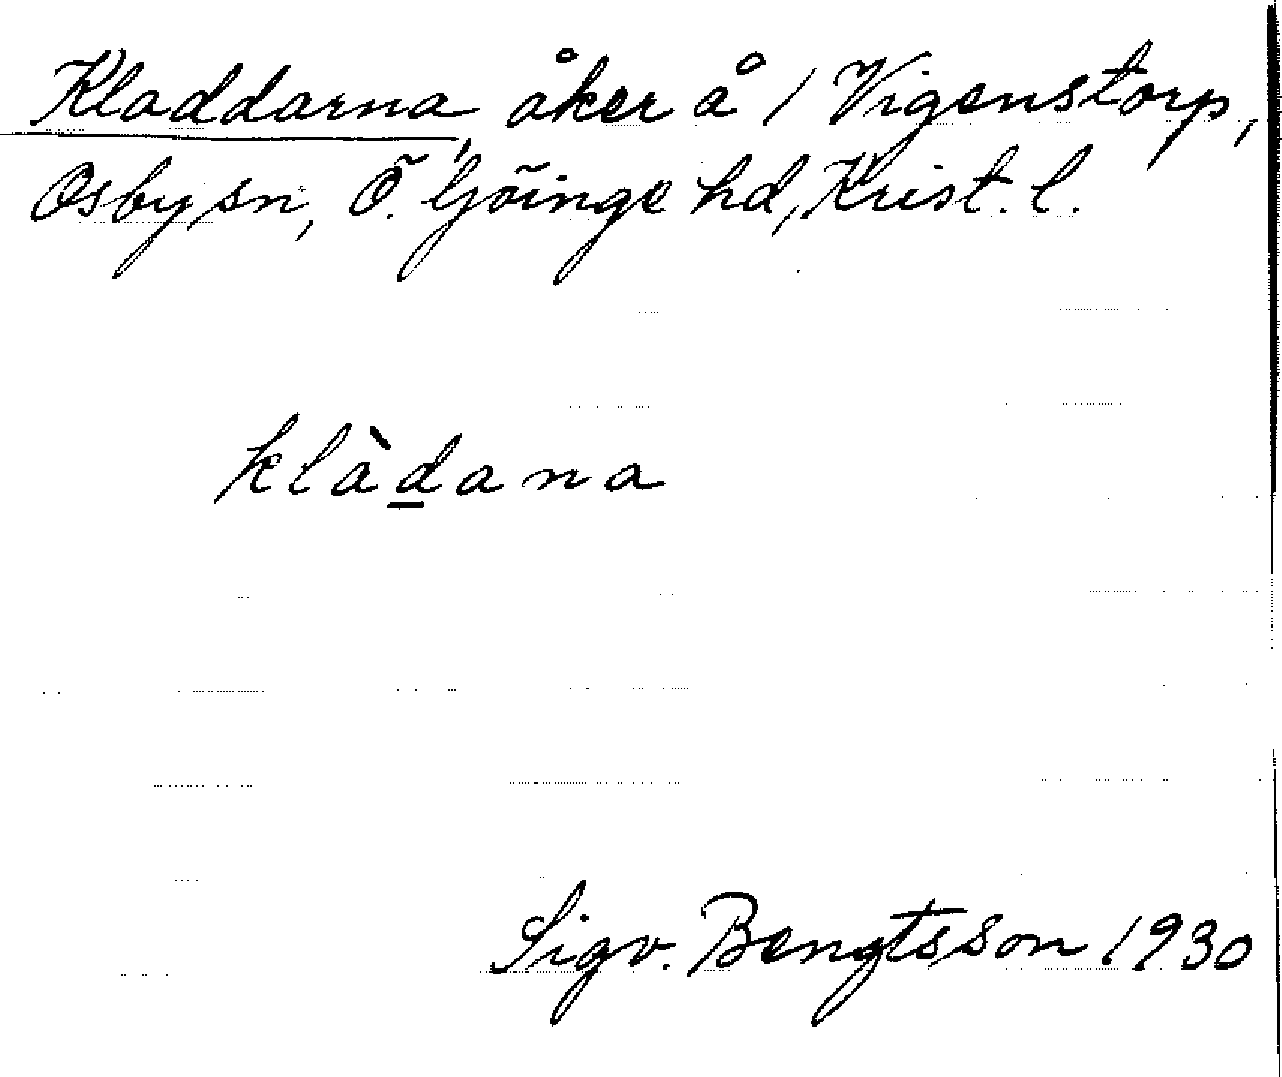 Kladdarna, åker å 1 Vigenstorp,
Osby sn, Ö. Göinge hd, Krist. l.
klàd̲ana
Sigv. Bengtsson 1930